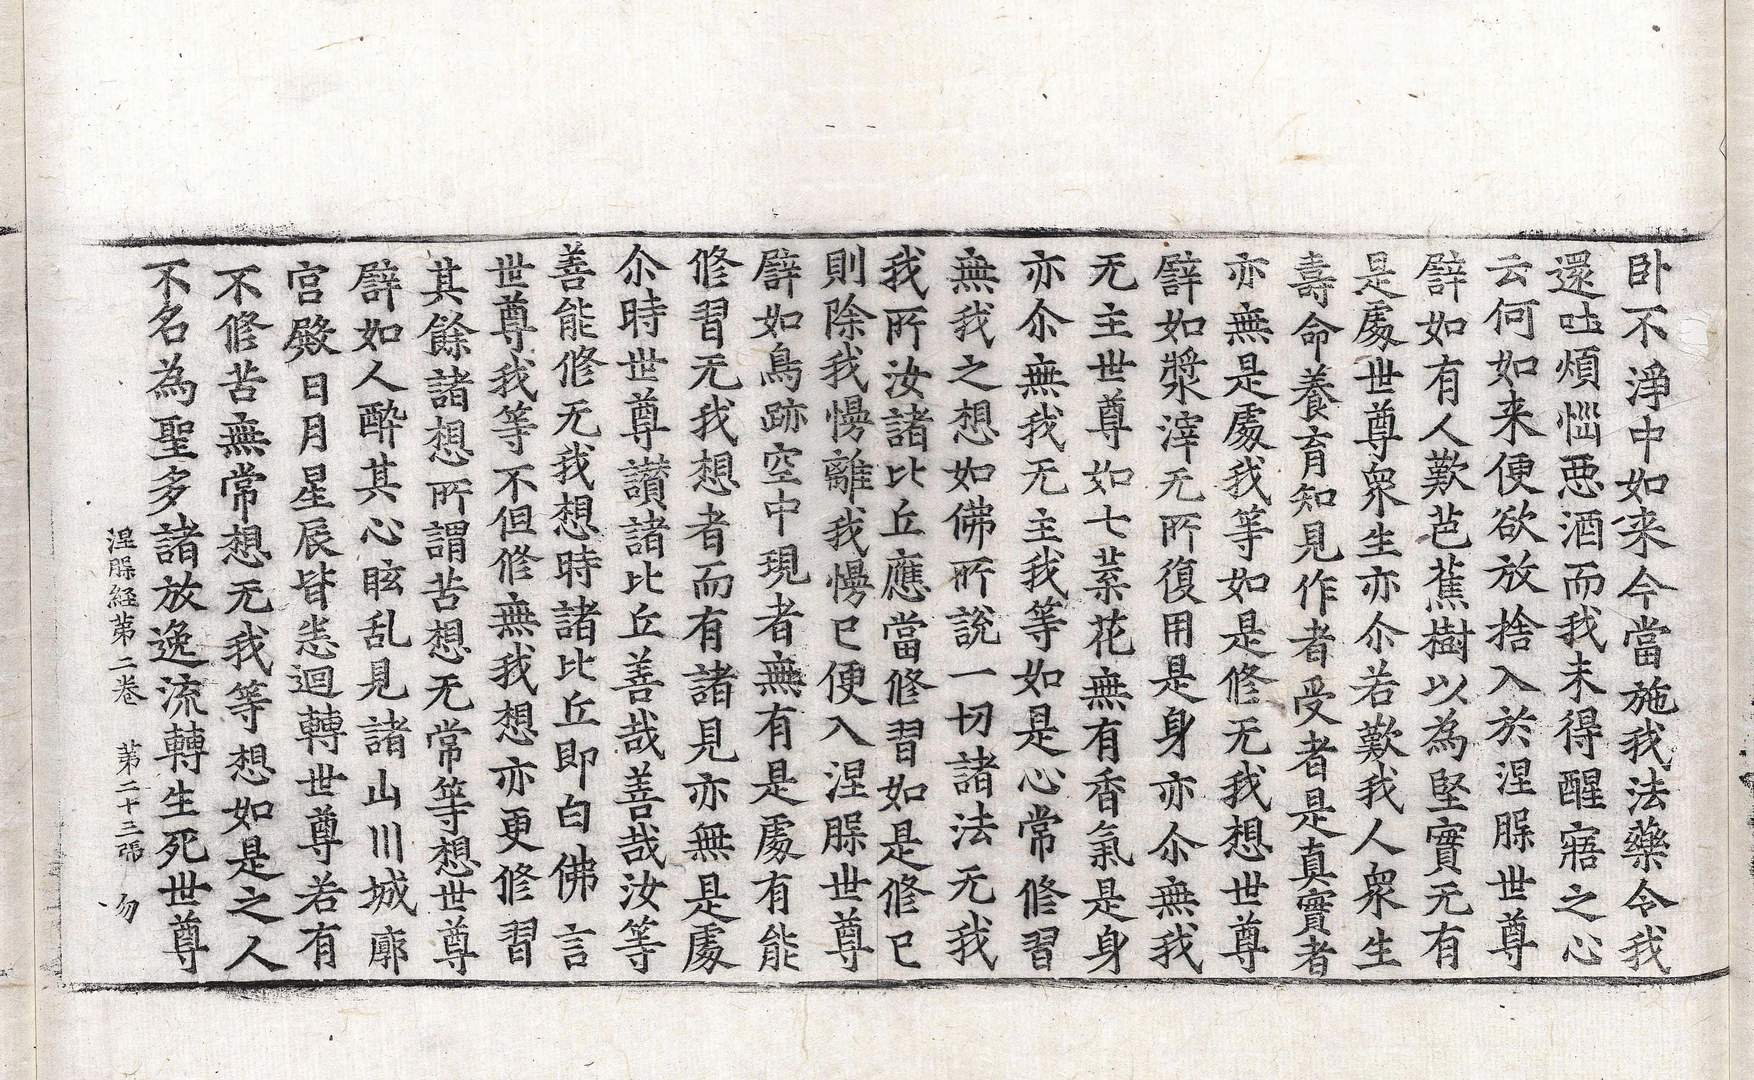 卧不淨中如来今當施我法藥令我
還吐煩惱惡酒而我未得醒寤之心
云何如来便欲放捨入於涅槃世尊
譬如有人歎芭蕉樹以為堅實无有
是處世尊衆生亦尒若歎我人衆生
壽命養育知見作者受者是真實者
亦無是處我等如是修无我想世尊
譬如漿滓无所復用是身亦尒無我
无主世尊如七葉花無有香氣是身
亦尒無我无主我等如是心常修習
無我之想如佛所說一切諸法无我
我所汝諸比丘應當修習如是修已
則除我慢離我慢已便入涅槃世尊
譬如鳥跡空中現者無有是處有能
修習无我想者而有諸見亦無是處
尒時世尊讃諸比丘善哉善哉汝等
善能修无我想時諸比丘即白佛言
世尊我等不但修無我想亦更修習
其餘諸想所謂苦想无常等想世尊
譬如人醉其心眩乱見諸山川城廓
宫殿日月星辰皆悉迴轉世尊若有
不修苦無常想无我等想如是之人
不名為聖多諸放逸流轉生死世尊
涅槃経第二卷 第二十三張 勿